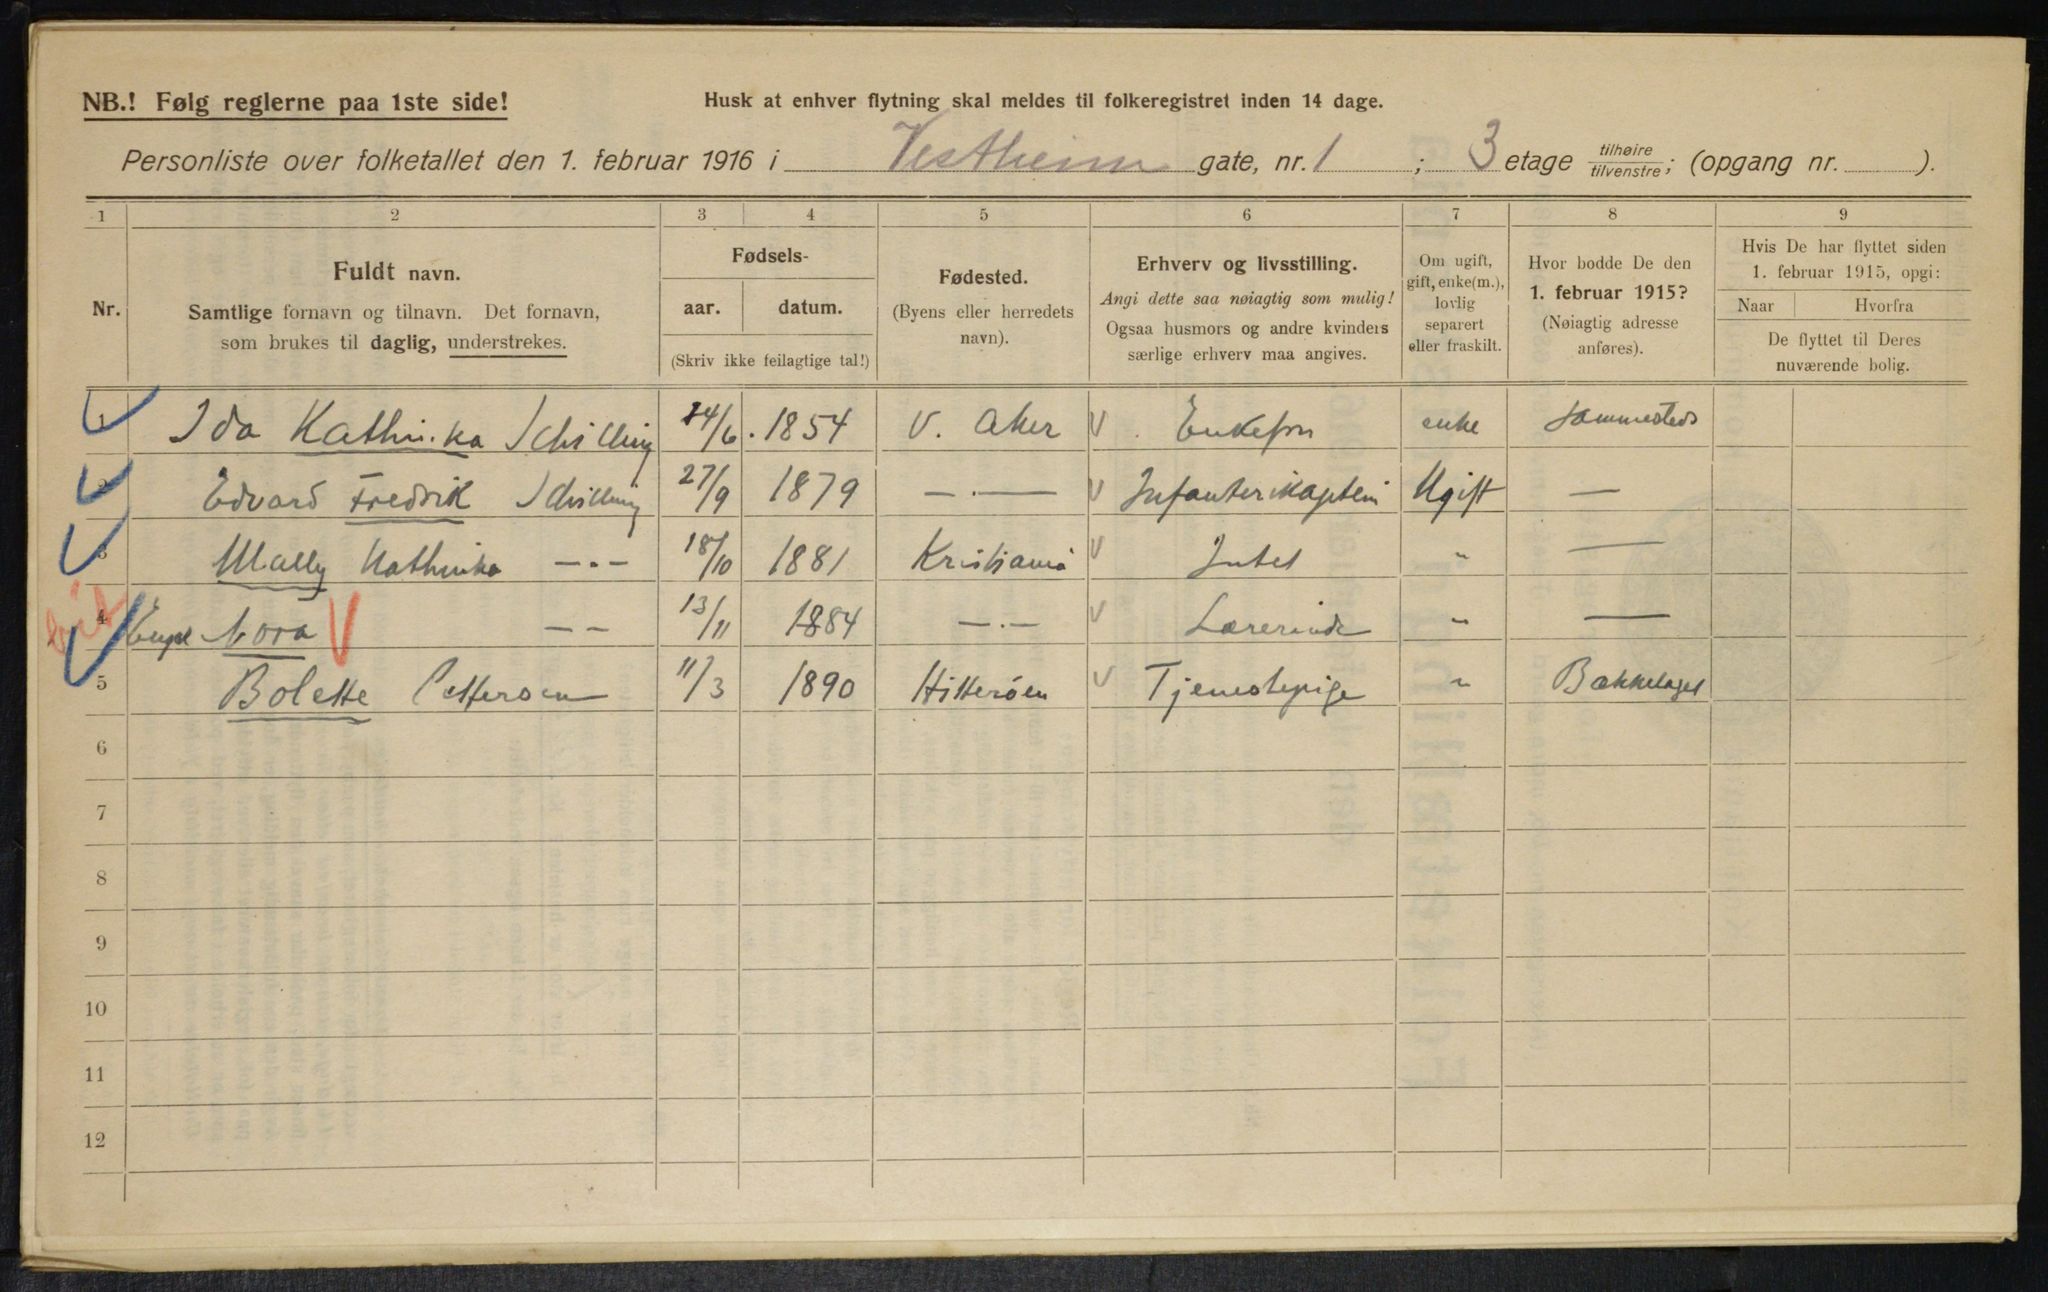 NB.! Følg reglerne paa 1ste side!
Husk at enhver flytning skal meldes til folkeregistret inden 14 dage.
Personliste over folketallet den 1. februar 1916 i Vestheim gate, nr. 1 ; 3 etage tilhøire/tilvenstre; (opgang nr. ).
1 2 3 4 5 6 7 8 9
Nr.
Fuldt navn.
Samtlige fornavn og tilnavn. Det fornavn,
som brukes til daglig, understrekes.
Fødsels-
aar. datum.
(Skriv ikke feilagtige tal!)
Fødested.
(Byens eller herredets
navn).
Erhverv og livsstilling.
Angi dette saa nøiagtig som mulig!
Ogsaa husmors og andre kvinders
særlige erhverv maa angives.
Om ugift,
gift, enke(m.),
lovlig
separert
eller fraskilt.
Hvor bodde De den
1. februar 1915?
(Nøiagtig adresse
anføres).
Hvis De har flyttet siden
1. februar 1915, opgi:
Naar Hvorfra
De flyttet til Deres
nuværende bolig.
1 Ida Kathinka Schilling 24/6. 1854 V. Aker V Enkefru enke Sammesteds
2 Edvard Fredrik Schilling 27/9 1879 —.— V Infanterikaptein Ugift —
3 Mally Kathinka —.— 18/10 1881 Kristiania V Intet " —
4 Nora V — — 13/11 1884 —.— V Lærerinde " —
5 Bolette Pettersen 11/3 1890 Hitterøen V Tjenestepige " Bækkelaget
6
7
8
9
10
11
12